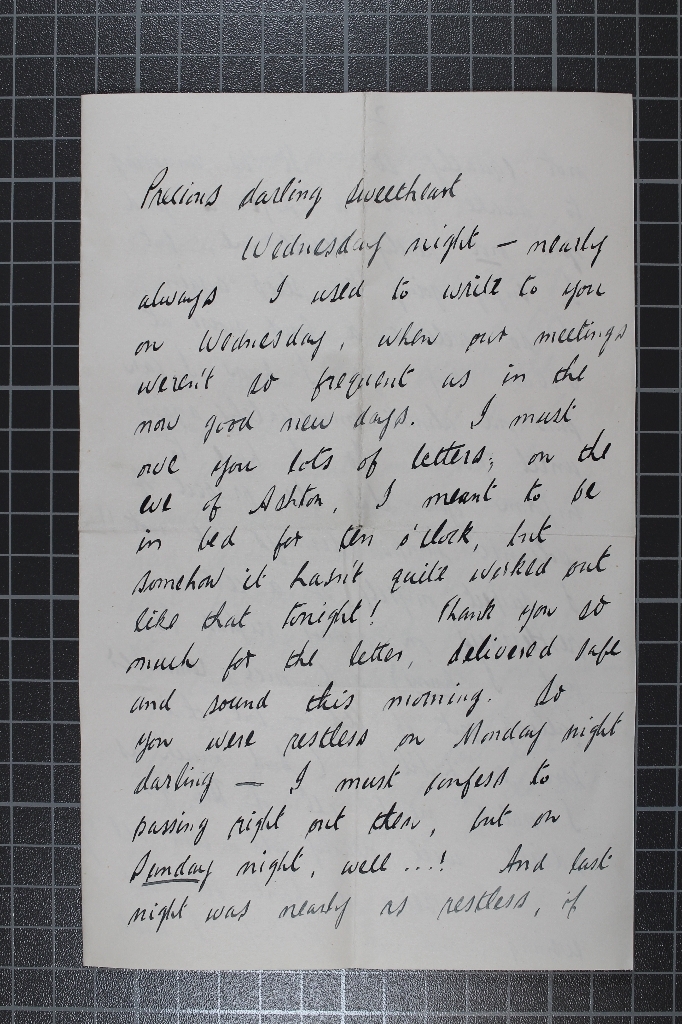 Precious darling sweetheart
Wednesday night – nearly
always I used to write to you
on Wednesday, when our meetings
weren't so frequent as in the
now good new days. I must
owe you lots of letters; on the
eve of Ashton, I meant to be
in bed for ten o'clock, but
somehow it hasn't quite worked out
like that tonight! Thank you so
much for the letter, delivered safe
and sound this morning. So
you were restless on Monday night
darling — I must confess to
passing right out then, but on
Sunday night, well ...! And last
night was nearly as restless, if